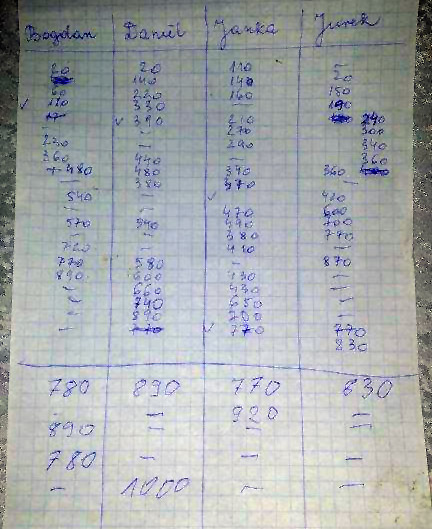 Bogdan Daniel Janka Jurek
20 20 110 –
140 140 20
60 220 160 150
110 330 – 190
390 210 240
– – 270 300
230 – 290 340
360 440 – 360
480 480 340 360
– 380 370 –
540 – 420
– 470 600
570 540 490 700
– – 380 770
720 – 410 –
770 580 – 870
890 600 430 –
– 660 430 –
– 740 650 –
– 890 700 –
– 770 770 770
830
780 890 770 830
– – 920 –
890 – – –
780 – – –
– 1000 – –